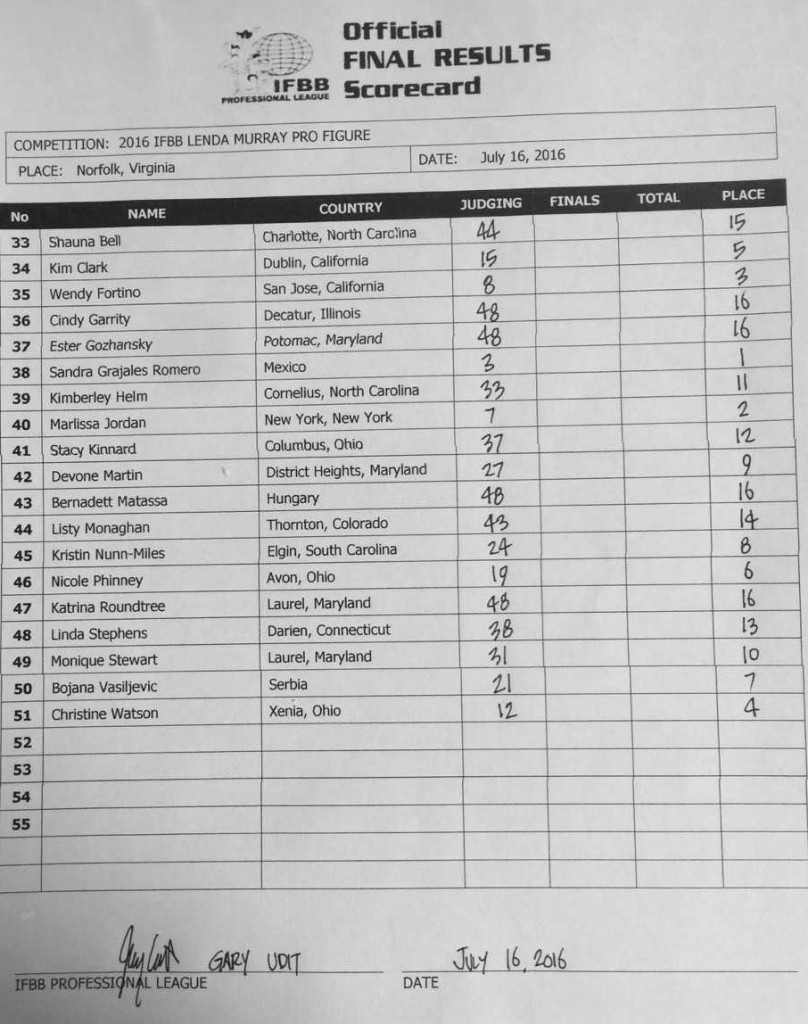 Official
FINAL RESULTS
Scorecard
IFBB
PROFESSIONAL LEAGUE
COMPETITION: 2016 IFBB LENDA MURRAY PRO FIGURE
PLACE: Norfolk, Virginia DATE: July 16, 2016
No NAME COUNTRY JUDGING FINALS TOTAL PLACE
33 Shauna Bell Charlotte, North Carolina 44 15
34 Kim Clark Dublin, California 15 5
35 Wendy Fortino San Jose, California 8 3
36 Cindy Garrity Decatur, Illinois 48 16
37 Ester Gozhansky Potomac, Maryland 48 16
38 Sandra Grajales Romero Mexico 3 1
39 Kimberley Helm Cornelius, North Carolina 33 11
40 Marlissa Jordan New York, New York 7 2
41 Stacy Kinnard Columbus, Ohio 37 12
42 Devone Martin District Heights, Maryland 27 9
43 Bernadett Matassa Hungary 48 16
44 Listy Monaghan Thornton, Colorado 43 14
45 Kristin Nunn-Miles Elgin, South Carolina 24 8
46 Nicole Phinney Avon, Ohio 19 6
47 Katrina Roundtree Laurel, Maryland 48 16
48 Linda Stephens Darien, Connecticut 38 13
49 Monique Stewart Laurel, Maryland 31 10
50 Bojana Vasiljevic Serbia 21 7
51 Christine Watson Xenia, Ohio 12 4
52
53
54
55
GARY UDIT JULY 16, 2016
IFBB PROFESSIONAL LEAGUE DATE